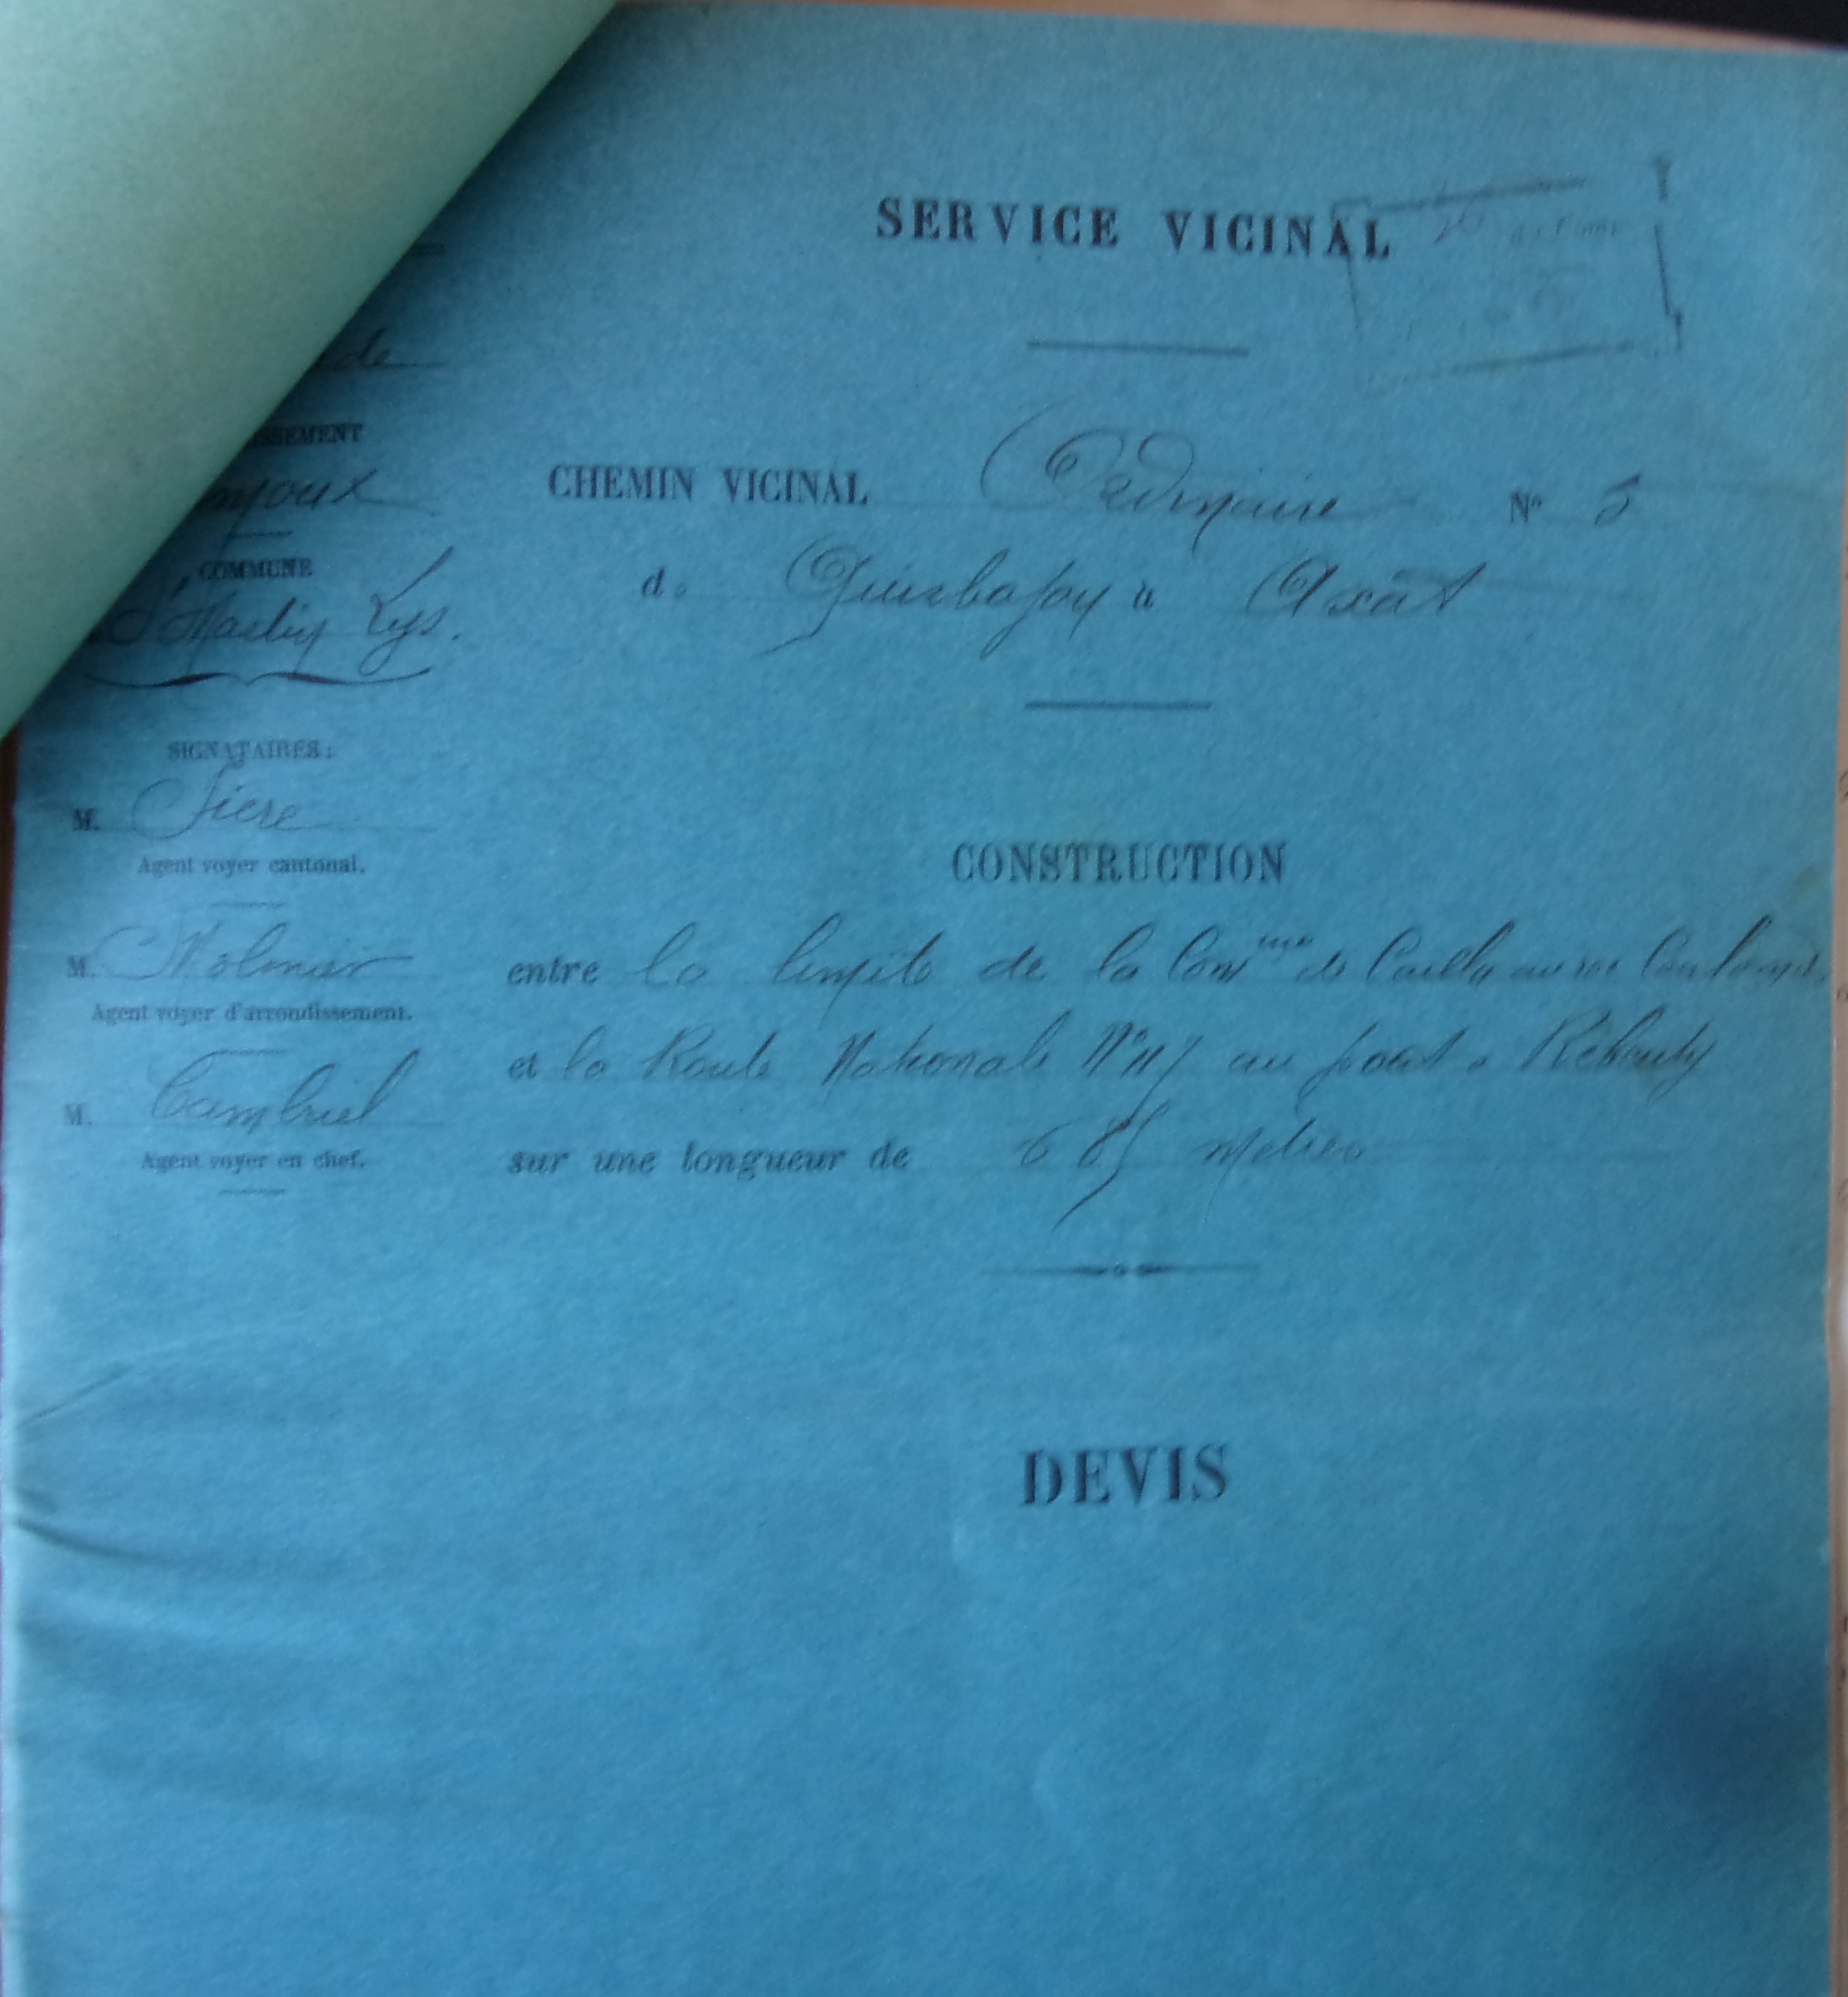 SERVICE VICINAL
de
SSEMENT
moux
COMMUNE
St Martin Lys.
CHEMIN VICINAL Ordinaire N° 5
de Quirbajou à Axat
SIGNATAIRES :
M. Siere
Agent voyer cantonal.
M.
Agent voyer d'arrondissement.
M. Cambriel
Agent voyer en chef.
CONSTRUCTION
entre la limite de la Comune de Cailla au roc
et la Route Nationale N° 117 au pont de Rébouty
sur une longueur de 685 mètres
DEVIS